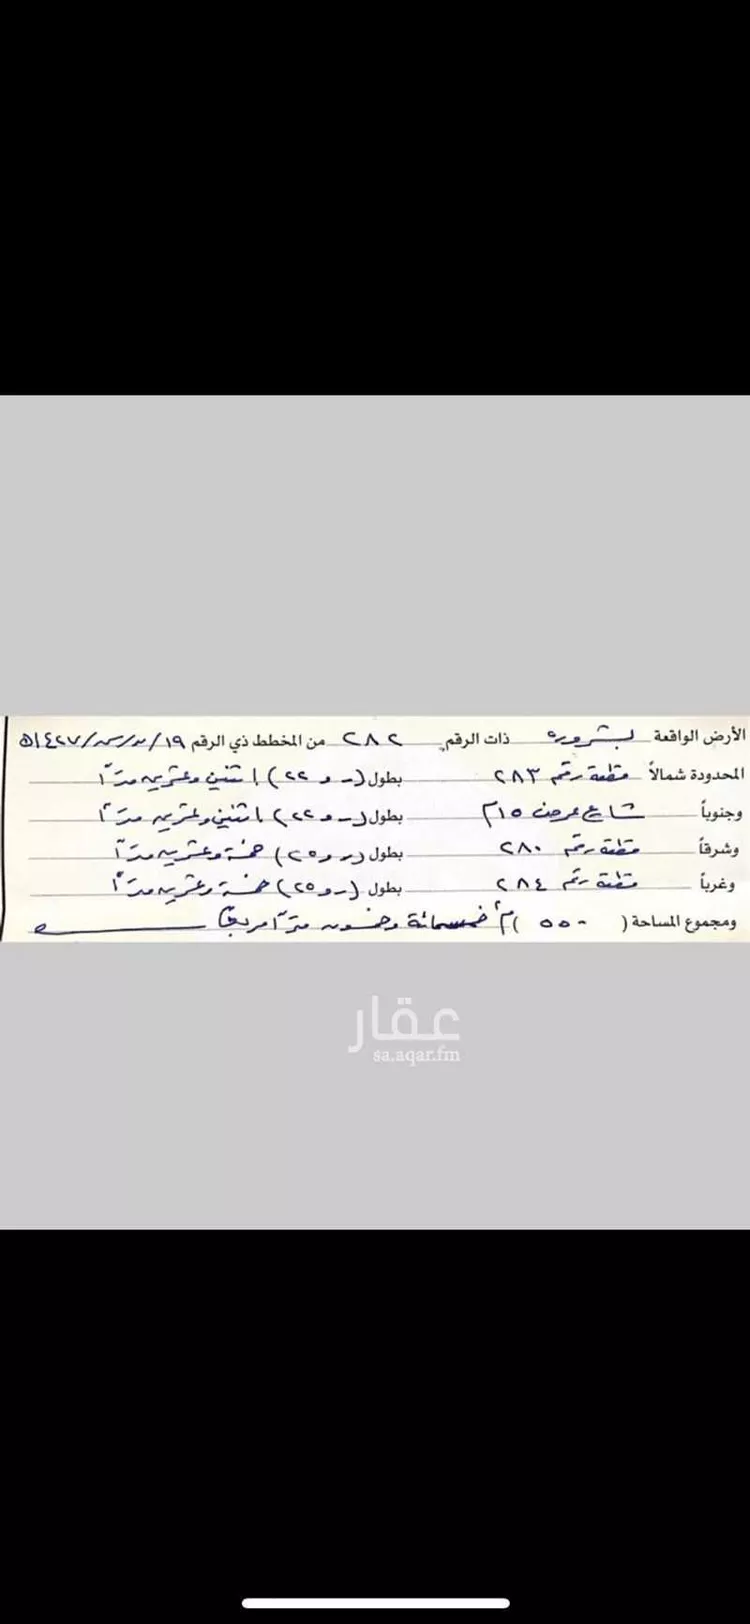 الأرض الواقعة بشروره ذات الرقم ٢٨٢ من المخطط ذي الرقم ١٩/ /١٤٢٧هـ
المحدودة شمالاً قطعة رقم ٢٨٣ بطول (-و٢٢) اثنين وعشرين متراً
وجنوباً شارع عرض ١٥م بطول (-و٢٢) اثنين وعشرين متراً
وشرقاً قطعة رقم ٢٨٠ بطول (-و٢٥) خمسة وعشرين متراً
وغرباً قطعة رقم ٢٨٤ بطول (-و٢٥) خمسة وعشرين متراً
ومجموع المساحة (٥٥٠)م٢ خمسمائة وخمسون متراً مربعاً
عقار
sa.aqar.fm